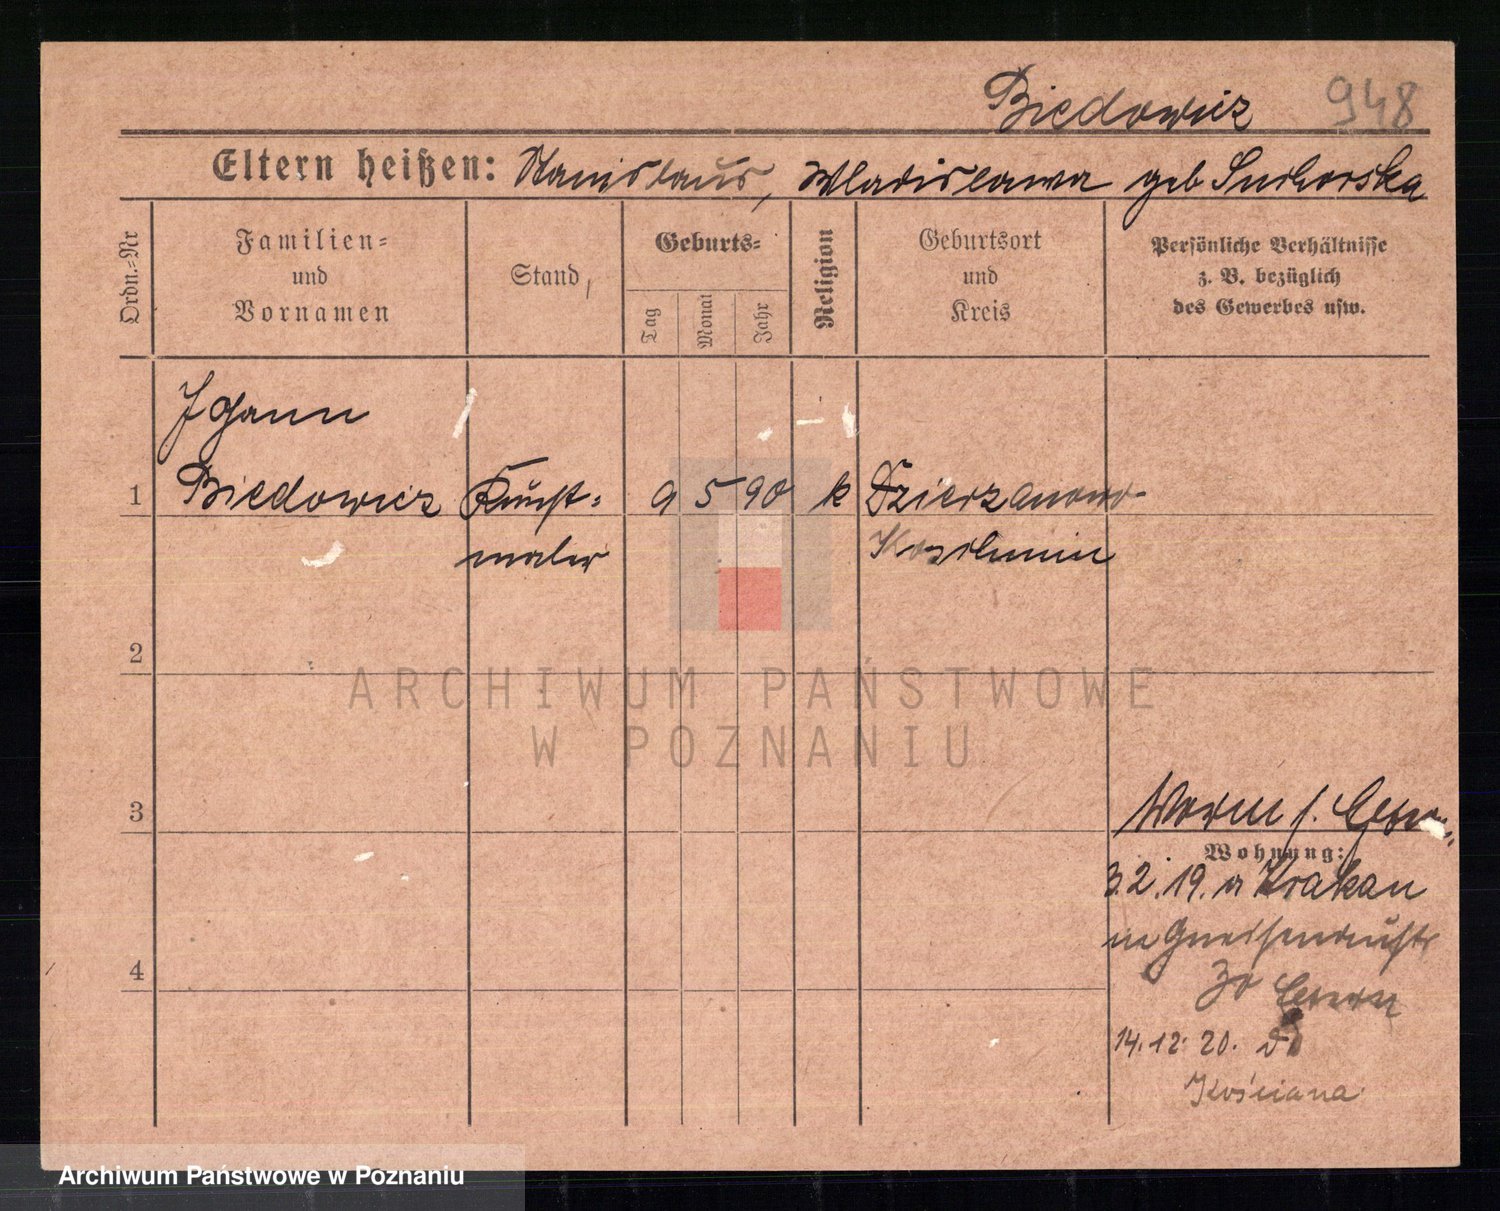 Biedowicz 948
Eltern heißen: Stanislaus, Wladislawa geb Suchorska
Ordn.-Nr
Familien-
und
Vornamen
Stand,
Geburts-
Tag
Monat
Jahr
Religion
Geburtsort
und
Kreis
Persönliche Verhältnisse
z. B. bezüglich
des Gewerbes usw.
Johann
1 Biedowicz Kunst- 9 5 90 k Dzierzanowo-
maler Koschmin
2
3
Worm s.
Wohnung:
3.2.19. a Krakau
in Gneisenaustr
30 Eltern
14.12.20. d
Kościana
4
ARCHIWUM PAŃSTWOWE
W POZNANIU
Archiwum Państwowe w Poznaniu